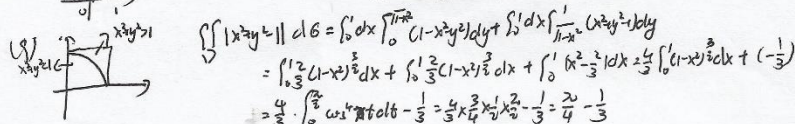 0 1
(4) x²+y²>1 x²+y²<1 ∬|x²+y²-1|dσ = ∫₀¹dx∫₀^√(1-x²) (1-x²-y²)dy + ∫₀¹dx∫_√(1-x²)^1 (x²+y²-1)dy
= ∫₀¹ 2/3 (1-x²)^(3/2) dx + ∫₀¹ 2/3 (1-x²)^(3/2) dx + ∫₀¹ (x²-2/3)dx = 4/3 ∫₀¹ (1-x²)^(3/2) dx + (-1/3)
= 4/3 · ∫₀^(π/2) cos⁴t dt - 1/3 = 4/3 × 3/4 × 1/2 × π/2 - 1/3 = π/4 - 1/3